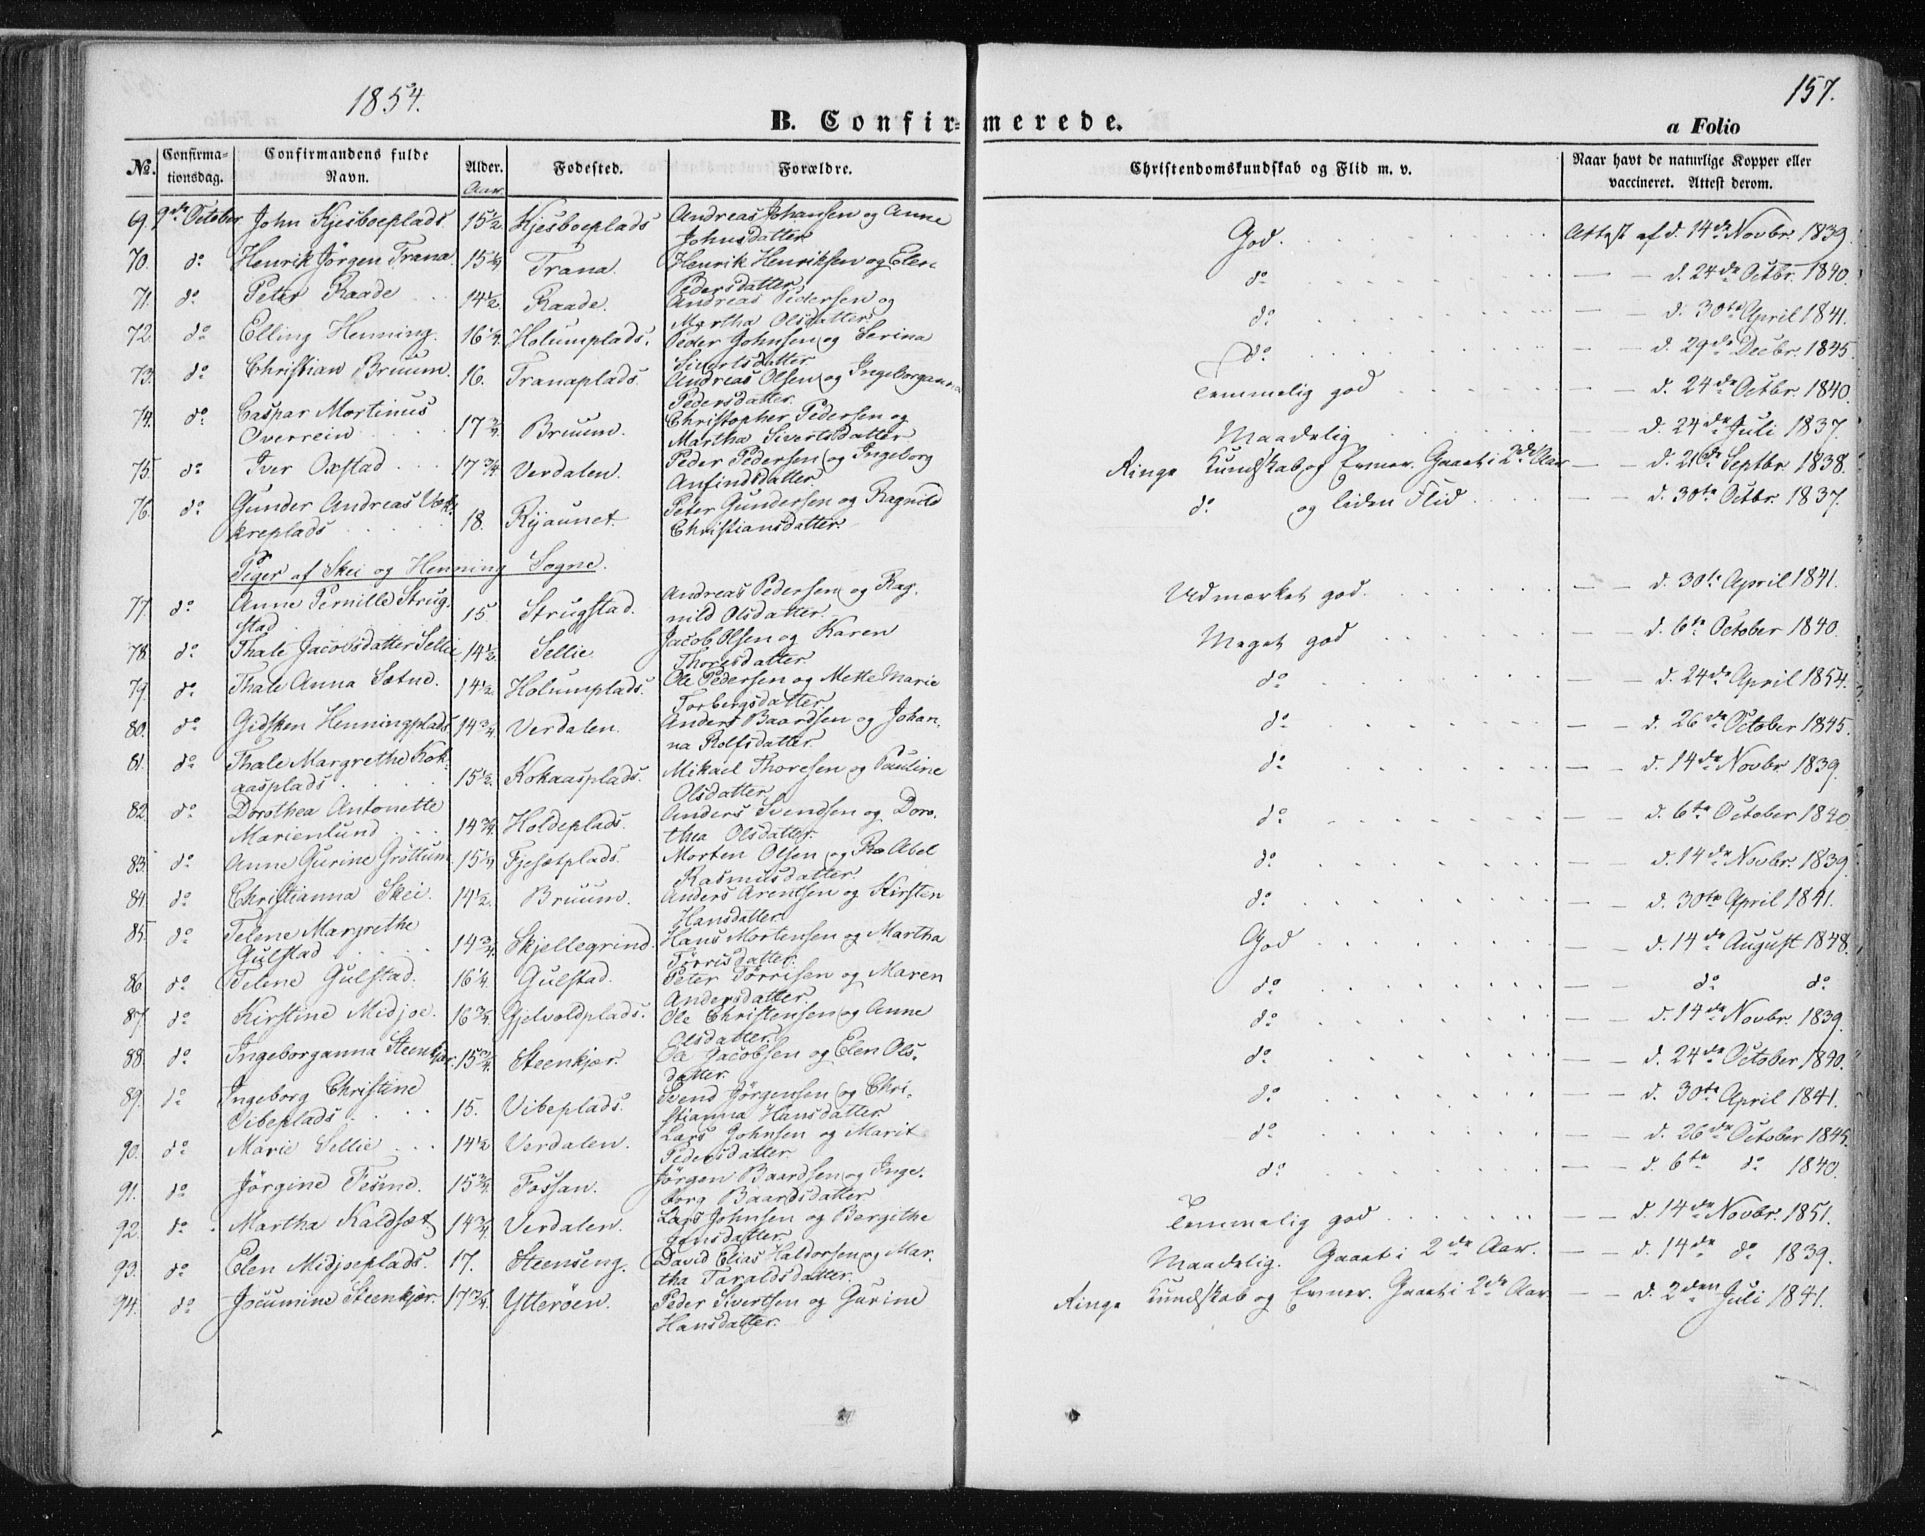 1854.
157.
B. Confir=merede.
a Folio
№. Confirma=tionsdag. Confirmandens fulde Navn. Alder. Aar. Fødested. Forældre. Christendomskundskab og Flid m. v. Naar havt de naturlige Kopper eller vaccineret. Attest derom.
69. 9de October John Kjesboeplads 15 1/2 Kjesboeplads Andreas Johansen og Anne God. Attest af d. 14de Novbr. 1839.
Johnsdatter
70. do Henrik Jørgen Trana 15 1/4 Trana. Henrik Henriksen og Elen do d. 24de Octbr. 1840.
Pedersdatter
71. do Peter Raade 14 1/2 Raade. Andreas Pedersen og do d. 30te April 1841.
Martha Olsdatter
72. do Elling Henning. 16 1/4 Holumplads. Peder Johnsen og Serina do d. 29de Decbr. 1845.
Sivertsdatter
73. do Christian Bruum. 16. Tranaplads. Andreas Olsen og Ingeborganna Temmelig god d. 24de Octbr. 1840.
Pedersdatter.
74. do Caspar Martinus Christopher Pedersen og
Overrein 17 3/4 Bruum. Martha Sivertsdatter Maadelig d. 24de Juli 1837.
75. do Iver Oxstad 17 3/4 Verdalen. Peder Pedersen og Ingeborg Ringe Kundskab og Evner. Gaaet i 2de Aar d. 21de Septbr. 1838.
Anfindsdatter
76. do Gunder Andreas Vok= Peter Gundersen og Ragnild do og liden Flid d. 30te Octbr. 1837.
kreplads 18. Ryaunet. Christiansdatter.
Piger af Skei og Henning Sogne.
77. do Anne Pernille Strug= 15. Strugstad. Andreas Pedersen og Rag= Udmærket god. d. 30te April 1841.
stad nild Olsdatter.
78. do Thale Jacobsdatter Sellie 14 1/2 Sellie Jacob Olsen og Karen Meget god d. 6te October 1840.
Thoresdatter
79. do Thale Anna Sætnd. 14 1/2 Holumplads. Ole Pedersen og Mette Marie do d. 24de April 1854.
Torbergsdatter
80. do Gidsken Henningplads 14 3/4 Verdalen. Anders Baardsen og Johan= do d. 26de October 1845.
na Rolfsdatter
81. do Thale Margrethe Kok= Mikael Thoresen og Pauline do d. 14de Novbr 1839.
aasplads 15 1/2 Kokaasplads. Olsdatter
82 do Dorothea Antonette Anders Svendsen og Doro= do d. 6te October 1840
Marienlund 14 3/4 Holdeplads. thea Olsdatter.
83. do Anne Gurine Grøttum 15 1/4 Fjesetplads. Morten Olsen og Abel do d. 14de Novbr. 1839.
Rasmusdatter.
84. do Christianna Skei. 14 1/2. Bruum. Anders Arentsen og Kirsten do d. 30te April 1841.
Hansdatter
85. do Telene Margrethe Hans Mortensen og Martha God d. 14de August 1848.
Gulstad 14 3/4 Skjellegrind. Tørrisdatter.
86 do Telene Gulstad. 16 1/4 Gulstad. Peter Tørrisen og Maren do do do
Andersdatter.
87. do Kirstine Midjoe. 16 3/4 Gjelvoldplads. Ole Christensen og Anne do d. 14de Novbr. 1839.
Olsdatter
88. do Ingeborganna Steenkjær. 15 3/4 Steenkjær. Ole Jacobsen og Elen Ols= do d. 24de October 1840.
datter.
89. do Ingeborg Christine Svend Jørgensen og Chri= do d. 30te April 1841.
Vibeplads 15. Vibeplads. stianna Hansdatter
90. do Marie Sellie 14 1/2 Verdalen. Lars Johnsen og Marit do d. 26de October 1845.
Pedersdatter.
91. do Jørgine Fesmd. 15 3/4 Fossan. Jørgen Baardsen og Inge= do d. 6te do 1840.
borg Baardsdatter
92. do Martha Kaldset 14 3/4 Verdalen. Lars Johnsen og Bergithe Temmelig god d. 14de Novbr. 1851.
Jensdatter
93. do Elen Midjoeplads. 17. Steenseng. David Elias Haldorsen og Mar= Maadelig. Gaaet i 2de Aar. d. 14de do 1839.
tha Taraldsdatter.
94. do Jocumine Steenkjær. 17 3/4 Ytterøen. Peder Sivertsen og Gurine Ringe Kundskab og Evner. Gaaet i 2de Aar d. 2den Juli 1841.
Hansdatter.